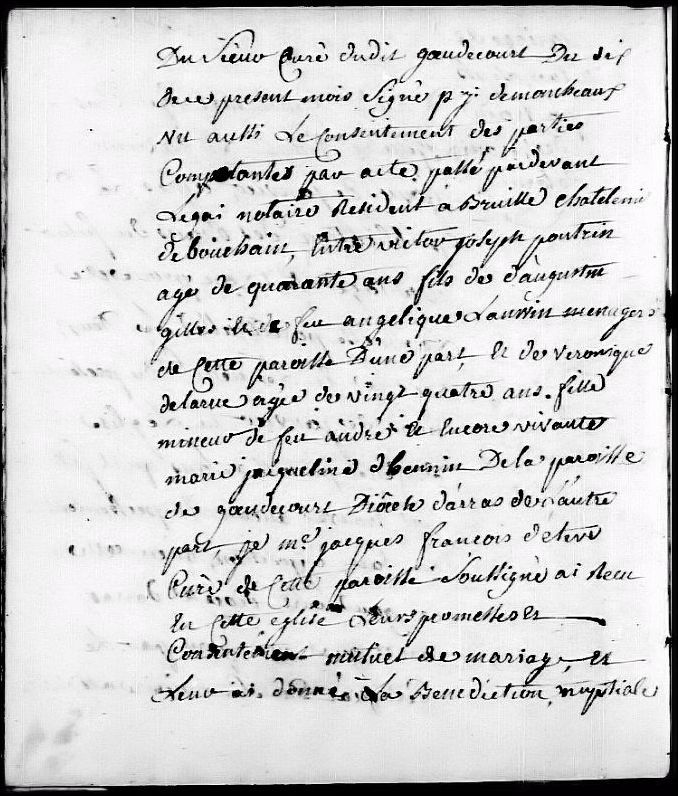 Du sieur Curé dudit goeudecourt Du six
de ce present mois Signé p j: demarcheaux
vu aussi Le Consentement des parties
Competantes par acte passé pardevant
Legai notaire Resident a Bruille chatelenie
de bouchain, Entre victor joseph poutrin
agé de quarante ans fils de d'augustin
gilles et de feu angelique Lauwin menagers
de Cette paroisse D'une part, Et de veronique
delarue agée de vingt quatre ans. fille
mineur de feu andré Et Encore vivante
marie jacqueline d'hennin De la paroisse
de goeudecourt Diocèse d'arras de L'autre
part, je me. jacques françois
Curé de Cette paroisse Soussigné ai Recu
En Cette eglise Leurs promesses Et
Consentement mutuel de mariage, Et
Leur ai donné La Benediction nuptiale